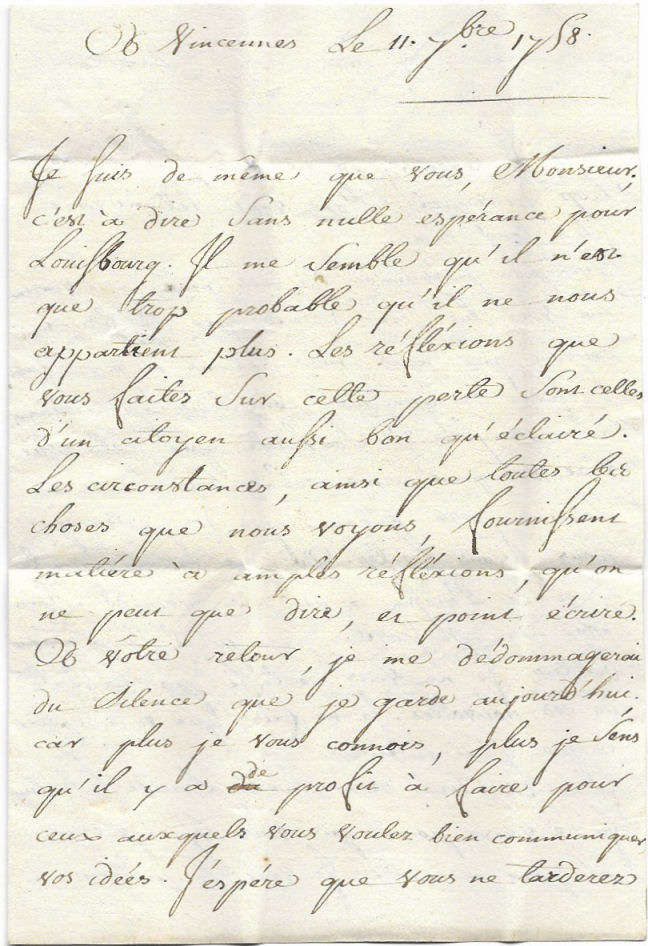 A Vincennes Le 11. 7bre 1758.
Je suis de même que vous, Monsieur,
c'est à dire sans nulle espérance pour
Louisbourg. Il me semble qu'il n'est
que trop probable qu'il ne nous
appartient plus. Les réfléxions que
vous faites sur cette perte sont celles
d'un citoyen aussi bon qu'éclairé.
Les circonstances, ainsi que toutes les
choses que nous voyons, fournissent
matiére à amples réfléxions, qu'on
ne peut que dire, et point écrire.
A vôtre retour, je me dédommagerai
du silence que je garde aujourd'hui.
car plus je vous connois, plus je sens
qu'il y a de profit à faire pour
ceux auxquels vous voulez bien communiquer
vos idées. J'espére que vous ne tarderez